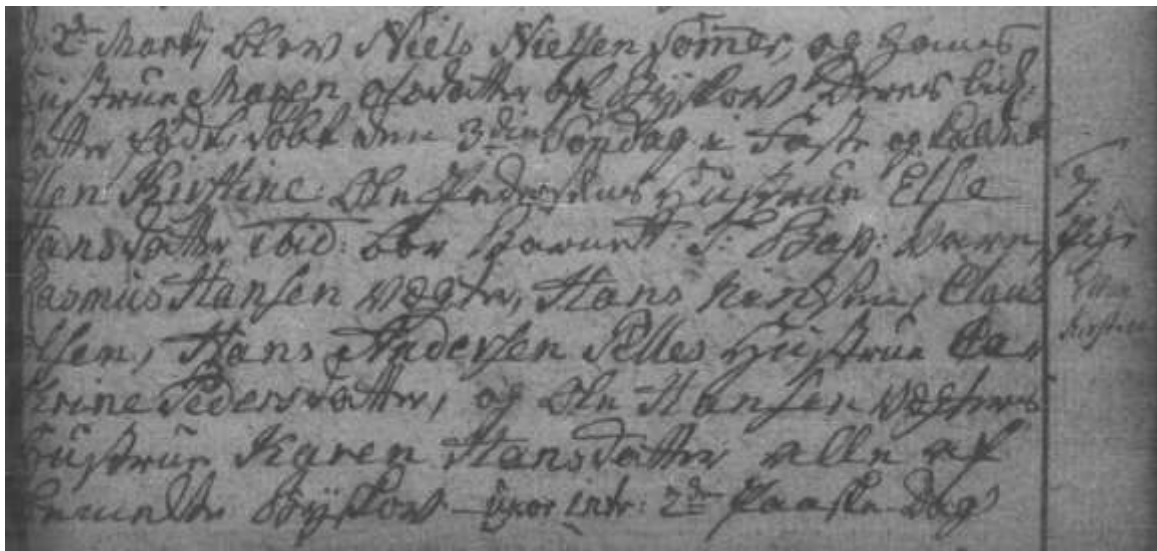 2den Martij blev Niels Nielsen Sommer, og Hans
Hustrue Maren Olsdatter af Byskow Deres
datter født, døbt den 3die Søndag i Faste og kaldet
Ellen Kirstine. Ole Pedersens Hustrue Else
Hansdatter ibid: bar Barnet. T: Bap: vare,
Rasmus Hansen Vægter, Hans Hansen, Claus
Olsen, Hans Andersen Pilles Hustrue Ca-
thrine Pedersdatter, og Ole Hansen Vægters
Hustrue Karen Hansdatter alle af
bemeldte Byskow - Uxor intr: 2den Paaske Dag
Ellen
Kirstine